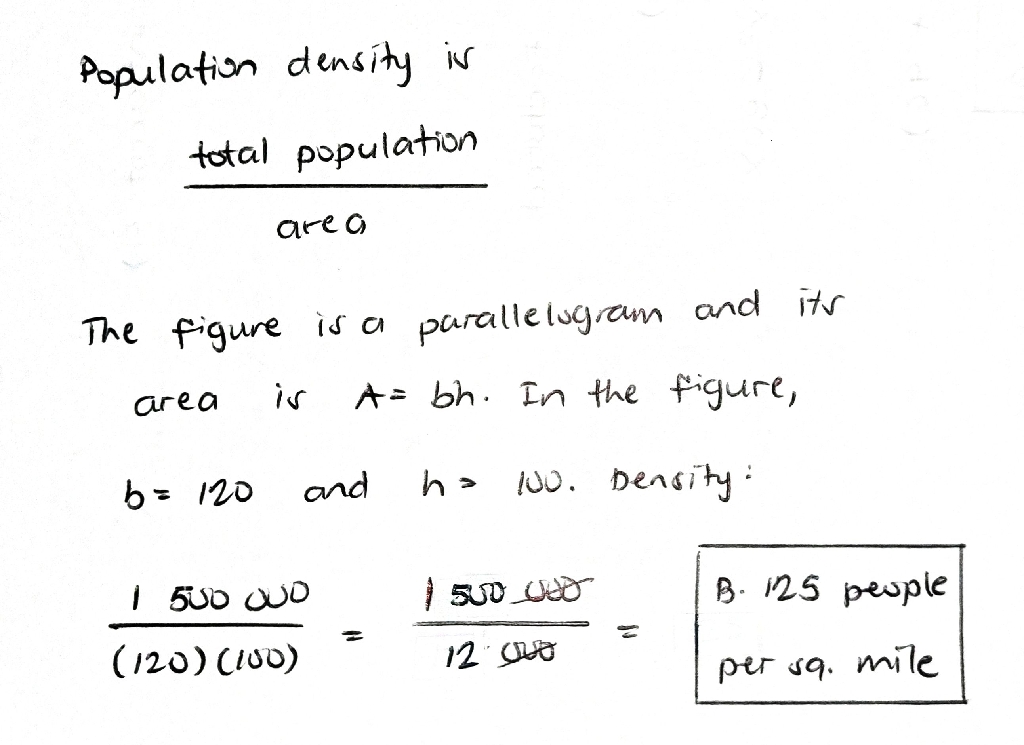 Population density is
total population
area
The figure is a parallelogram and its
area is A = bh. In the figure,
b = 120 and h = 100. Density:
1 500 000 / (120)(100) = 1 500 000 / 12 000 =
B. 125 people
per sq. mile